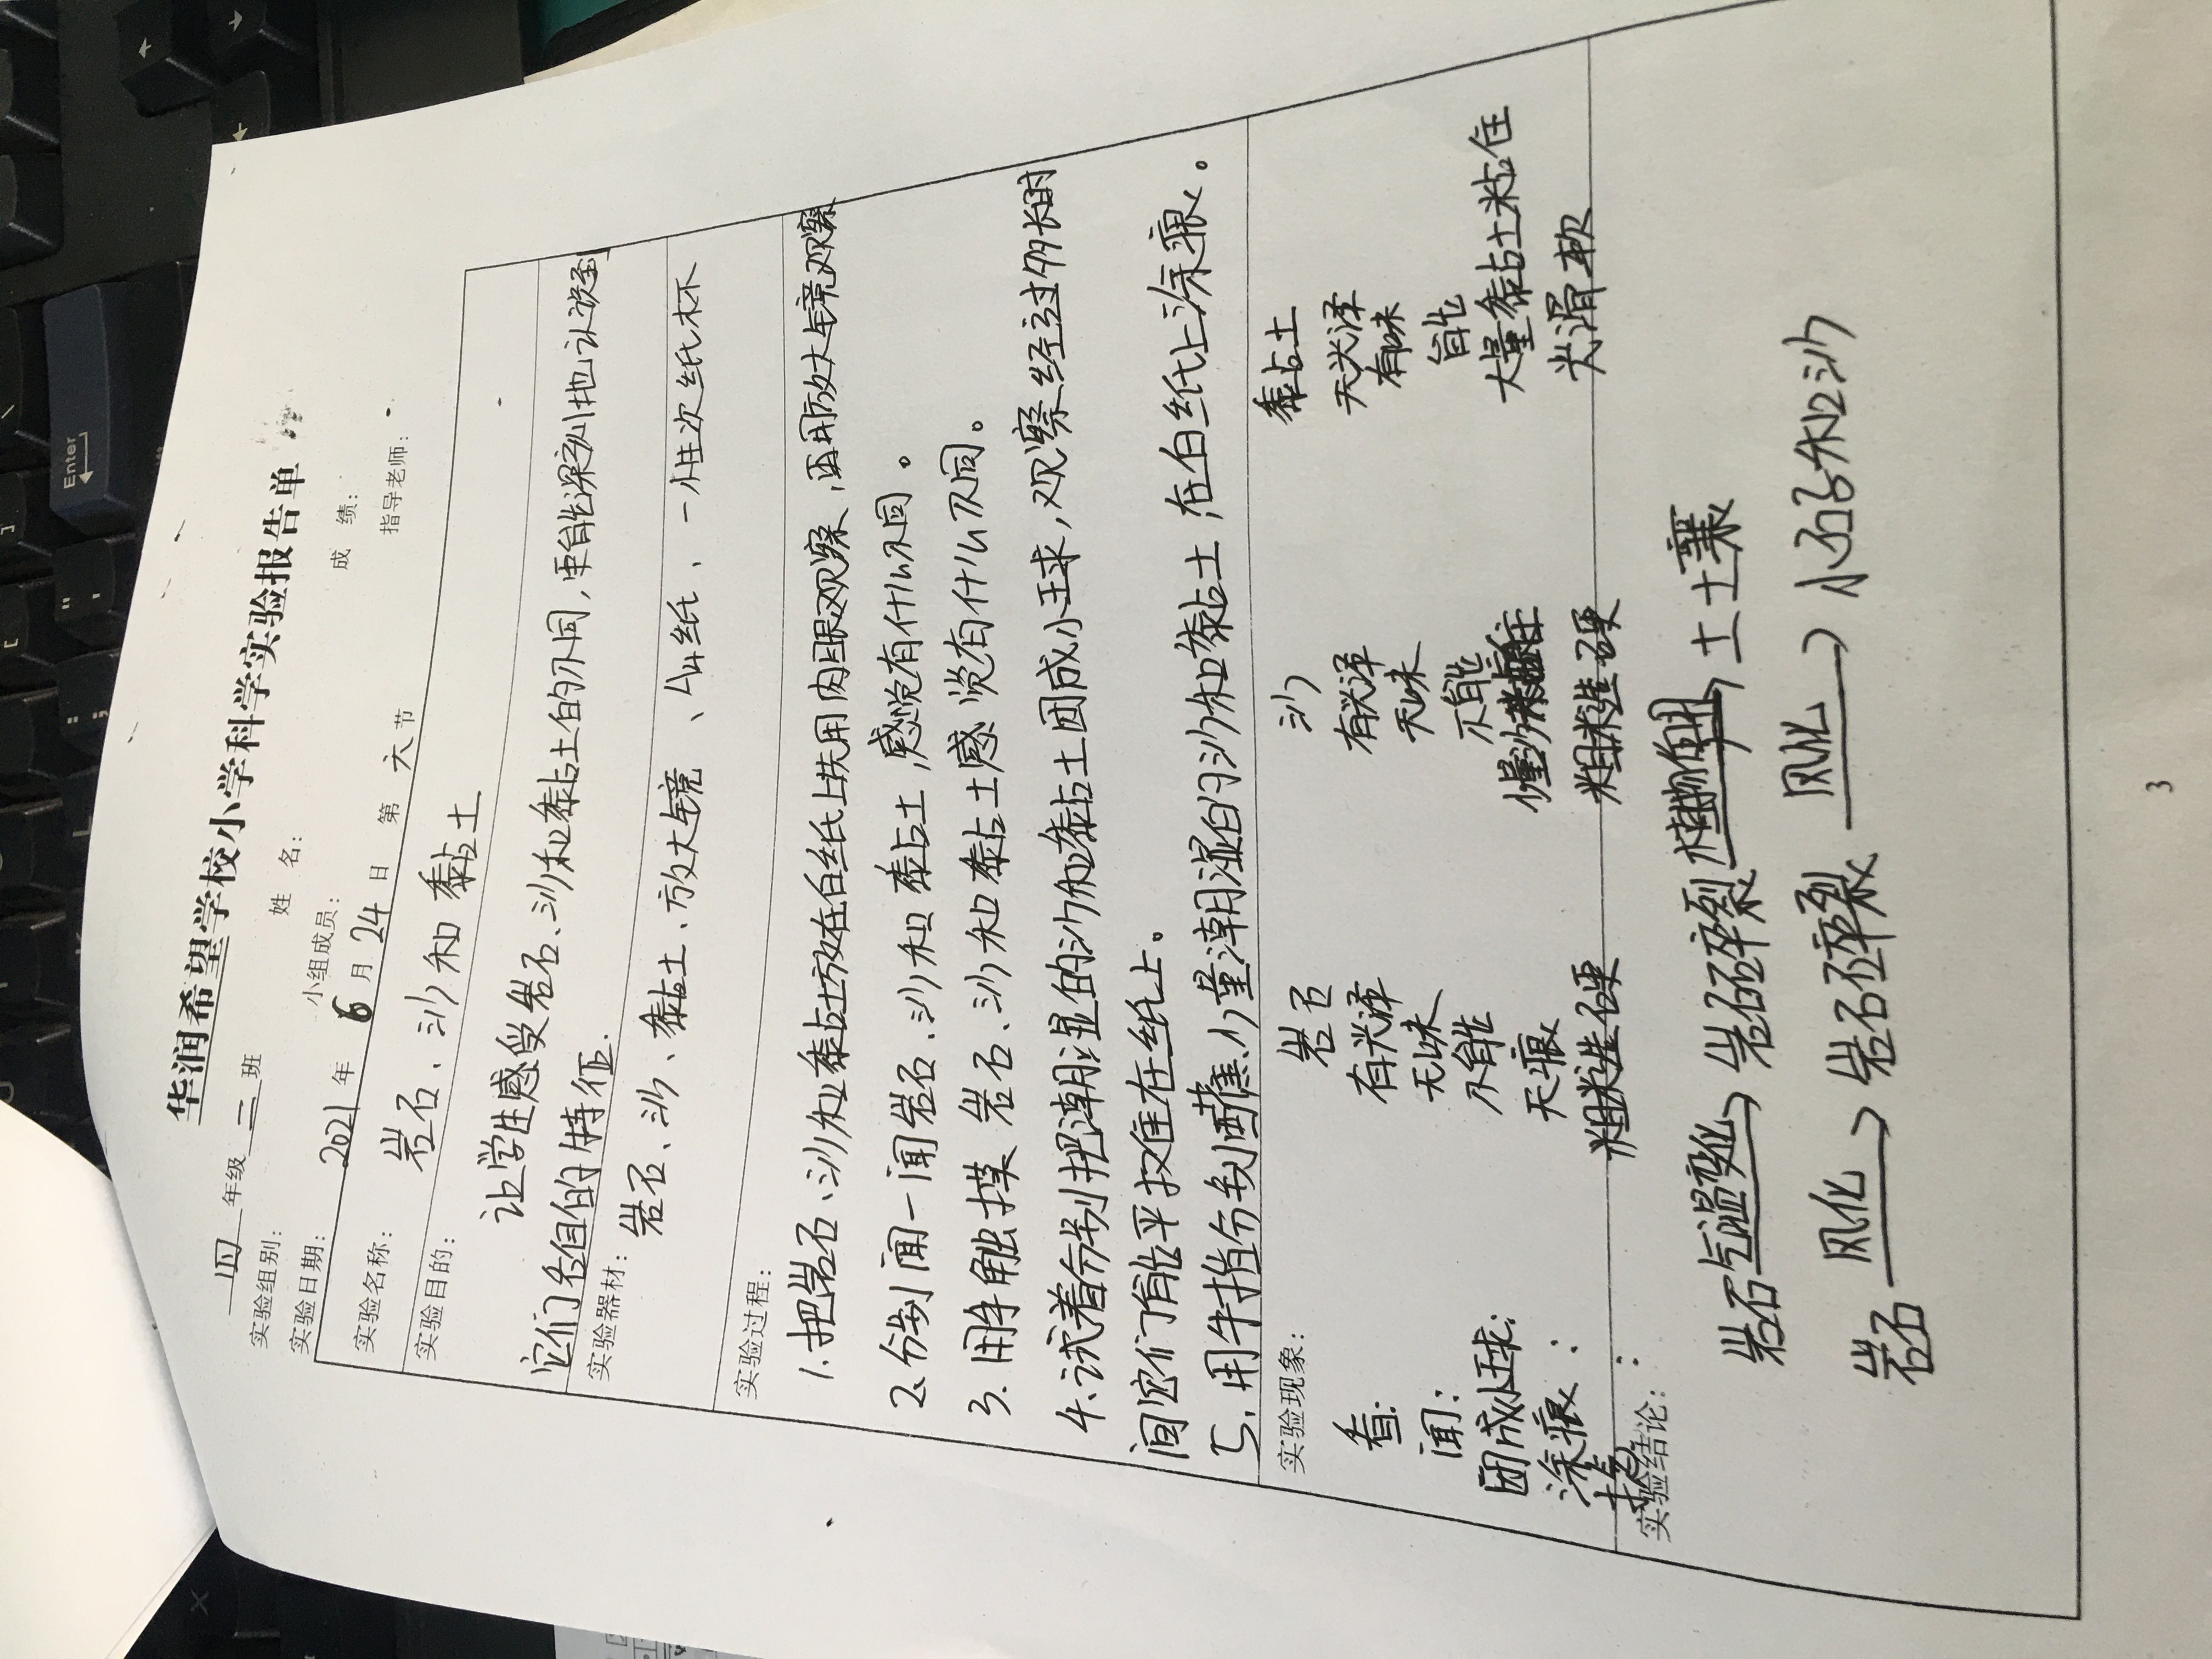 华润希望学校小学科学实验报告单
四 年级 二 班 姓 名: 成 绩:
实验组别: 小组成员: 指导老师:
实验日期: 2021 年 6 月 24 日 第 六 节
实验名称: 岩石、沙和黏土
实验目的:
让学生感受岩石、沙和黏土的不同,更能深刻地认识到
它们各自的特征.
实验器材: 岩石、沙、黏土、放大镜、A4纸、一性次纸杯
实验过程:
1.把岩石、沙和黏土放在白纸上先用肉眼观察,再用放大镜观察
2.分别闻一闻岩石、沙和黏土,感觉有什么不同。
3.用手触摸岩石、沙和黏土感觉有什么不同。
4.试着分别把潮湿的沙和黏土团成小王求,观察经过多长时
间它们能平摊在纸上。
5.用手指分别蘸少量潮湿的沙和黏土,在白纸上涂痕。
实验现象: 岩石 沙 黏土
看: 有光泽 有光泽 无光泽
闻: 无味 无味 有味
团成小球: 不能 不能 能
涂痕: 无痕 大量黏土粘住
粗糙硬 粗糙硬 光滑软
实验结论:
岩石 气温变化 岩石碎裂 土壤
岩石 风化 岩石碎裂 风化 小石子和沙
3
Enter